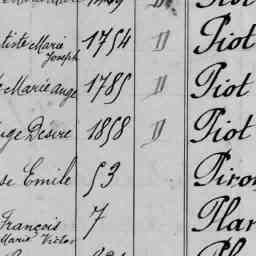 tiste Marie Joseph 1754 D Piot
Marie ange 1785 D Piot
uge Désiré 1858 D Piot
se Emile 53 Piro
François Marie Victor 7 Plan